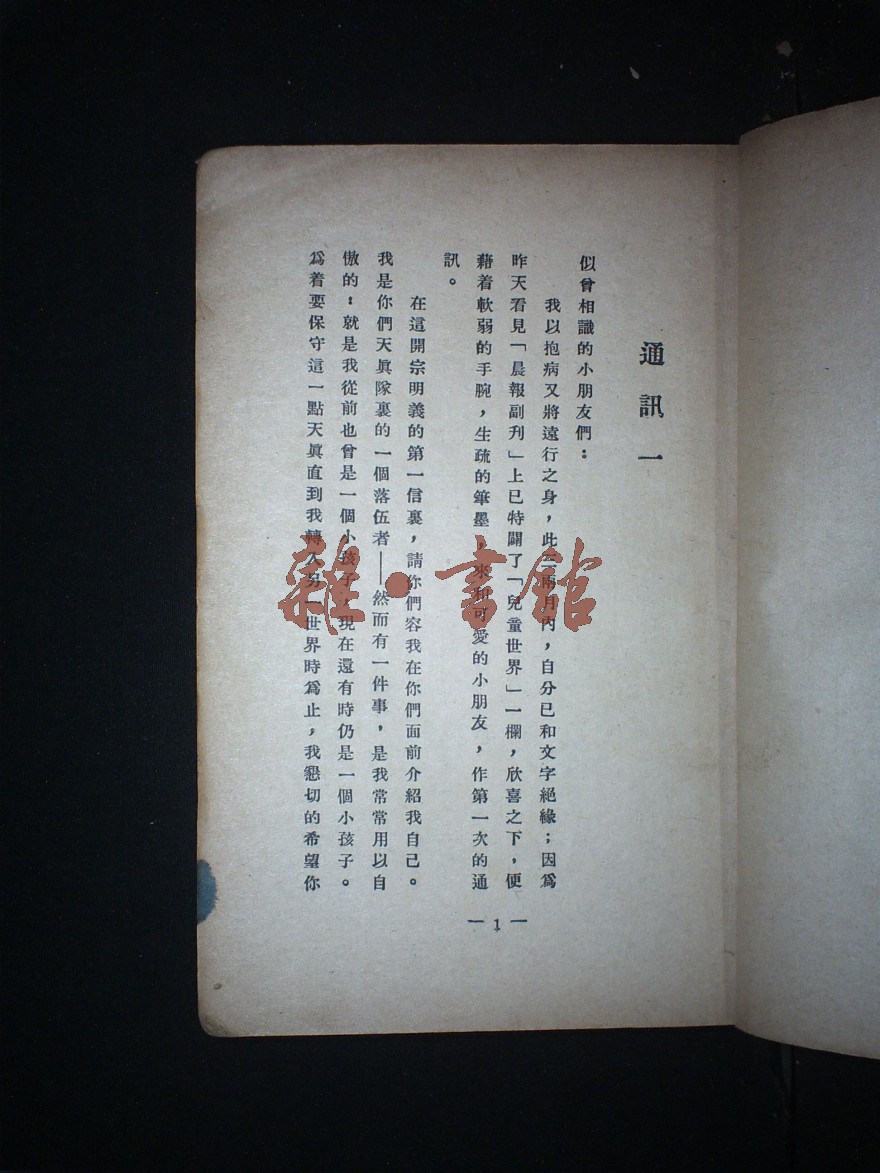 通訊一
似曾相識的小朋友們：
我以抱病又將遠行之身，此三兩月內，自分已和文字絕緣；因爲
昨天看見「晨報副刋」上已特闢了「兒童世界」一欄，欣喜之下，便
藉着軟弱的手腕，生疏的筆墨，來和可愛的小朋友，作第一次的通
訊。
在這開宗明義的第一信裏，請你們容我在你們面前介紹我自己。
我是你們天眞隊裏的一個落伍者——然而有一件事，是我常常用以自
傲的：就是我從前也曾是一個小孩子，現在還有時仍是一個小孩子。
爲着要保守這一點天眞直到我轉入另一世界時爲止，我懇切的希望你
— 1 —
雜·書館